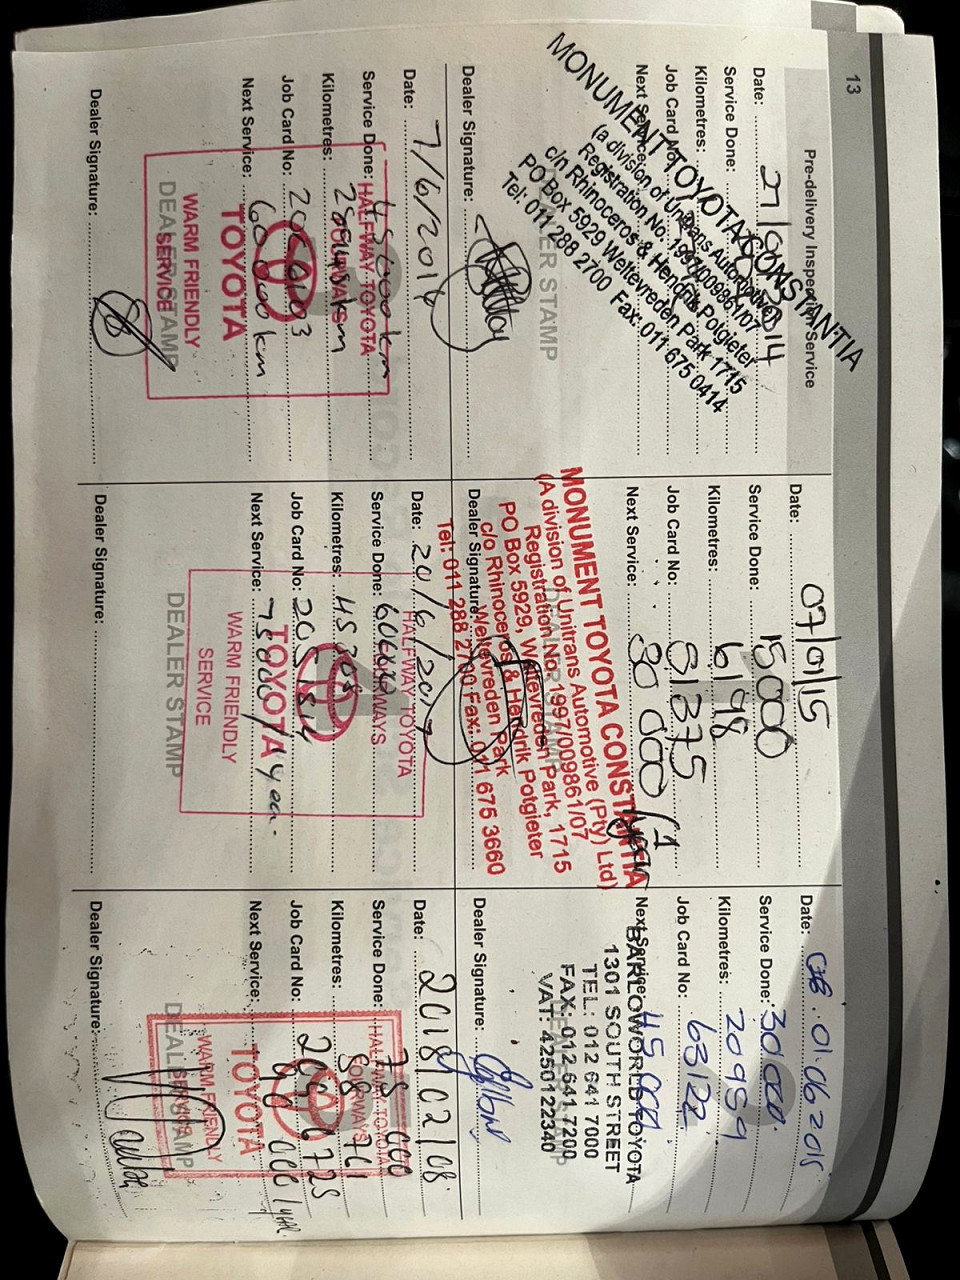 13
Pre-delivery Inspection Service
Date:
Service Done:
Kilometres:
Job Card No:
Next Service:
MONUMENT TOYOTA CONSTANTIA
(a division of Unitrans Automotive
Registration No. 1997/009861/07
c/n Rhinoceros & Hendrik Potgieter
PO Box 5929 Weltevreden Park 1715
Tel: 011 288 2700 Fax: 011 675 0414
DEALER STAMP
Dealer Signature:
Date: 07/01/15
Service Done: 15000
Kilometres: 6198
Job Card No: 61375
Next Service: 30 000 / 1 year
MONUMENT TOYOTA CONSTANTIA
(A division of Unitrans Automotive (Pty) Ltd)
Registration No. 1997/009861/07
PO Box 5929, Weltevreden Park, 1715
c/o Rhinoceros & Hendrik Potgieter
Weltevreden Park
Tel: 011 288 2700 Fax: 011 675 3660
DEALER STAMP
Dealer Signature:
Date: 01.06.2015
Service Done: 30 000
Kilometres: 20959
Job Card No: 63122
Next Service: 45 000
BARLOWORLD TOYOTA
1301 SOUTH STREET
TEL: 012 641 7000
FAX: 012 641 7200
VAT: 4250122340
Dealer Signature:
Date: 7/6/2016
Service Done: 45000km
Kilometres:
Job Card No:
Next Service: 60000 km
HALFWAY TOYOTA
FOURWAYS
TOYOTA
WARM FRIENDLY
SERVICE
DEALER STAMP
Dealer Signature:
Date: 20/6/2017
Service Done: 60000
Kilometres: 45308
Job Card No:
Next Service: 75000/1year
HALFWAY TOYOTA
FOURWAYS
TOYOTA
WARM FRIENDLY
SERVICE
DEALER STAMP
Dealer Signature:
Date: 2018/02/08
Service Done: 75 000
Kilometres: 58 761
Job Card No:
Next Service: 90 000/year
HALFWAY TOYOTA
FOURWAYS
TOYOTA
WARM FRIENDLY
SERVICE
DEALER STAMP
Dealer Signature: